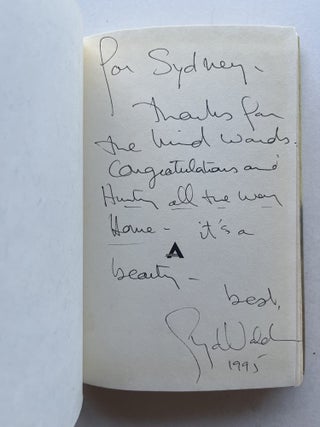 for Sydney -
Thanks for
the kind words.
Congratulations and
Hunting all the way
Home - it's a
A
beauty -
best,
1995